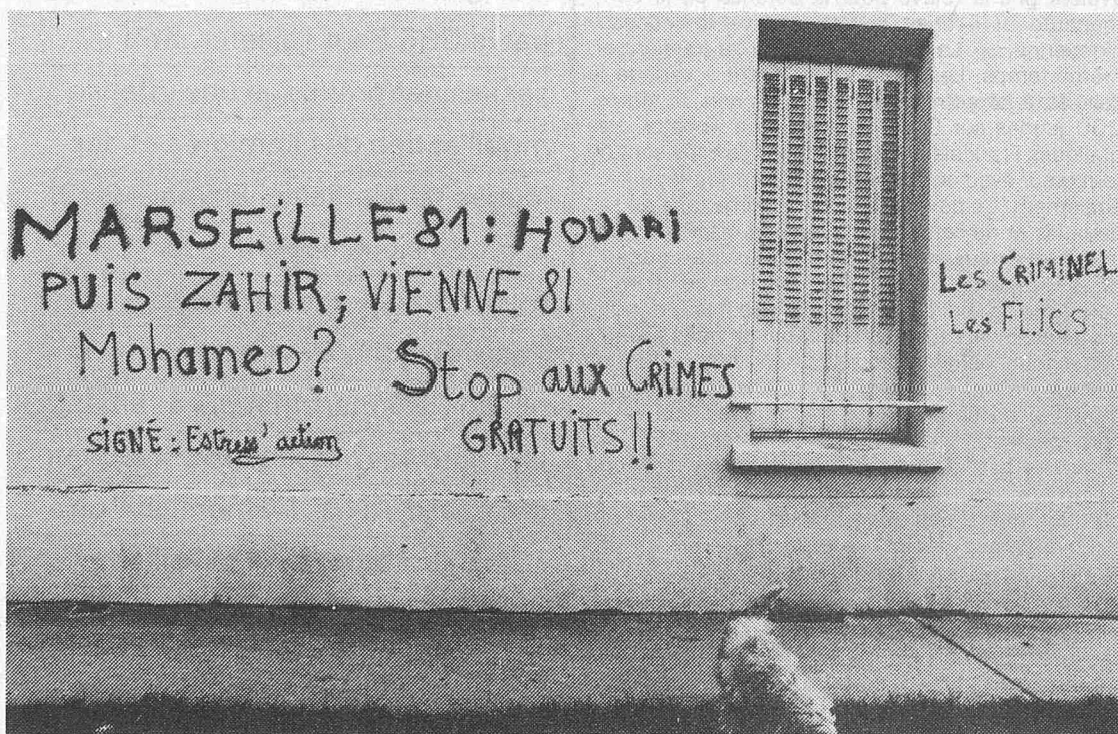 MARSEiLLE 81 : HOUARI
PUiS ZAHiR ; ViENNE 81
MohameD ?
Stop aux CRiMES
GRATUiTS !!
SiGNÉ : Estress'action
Les CRiMiNEL
Les FLiCS